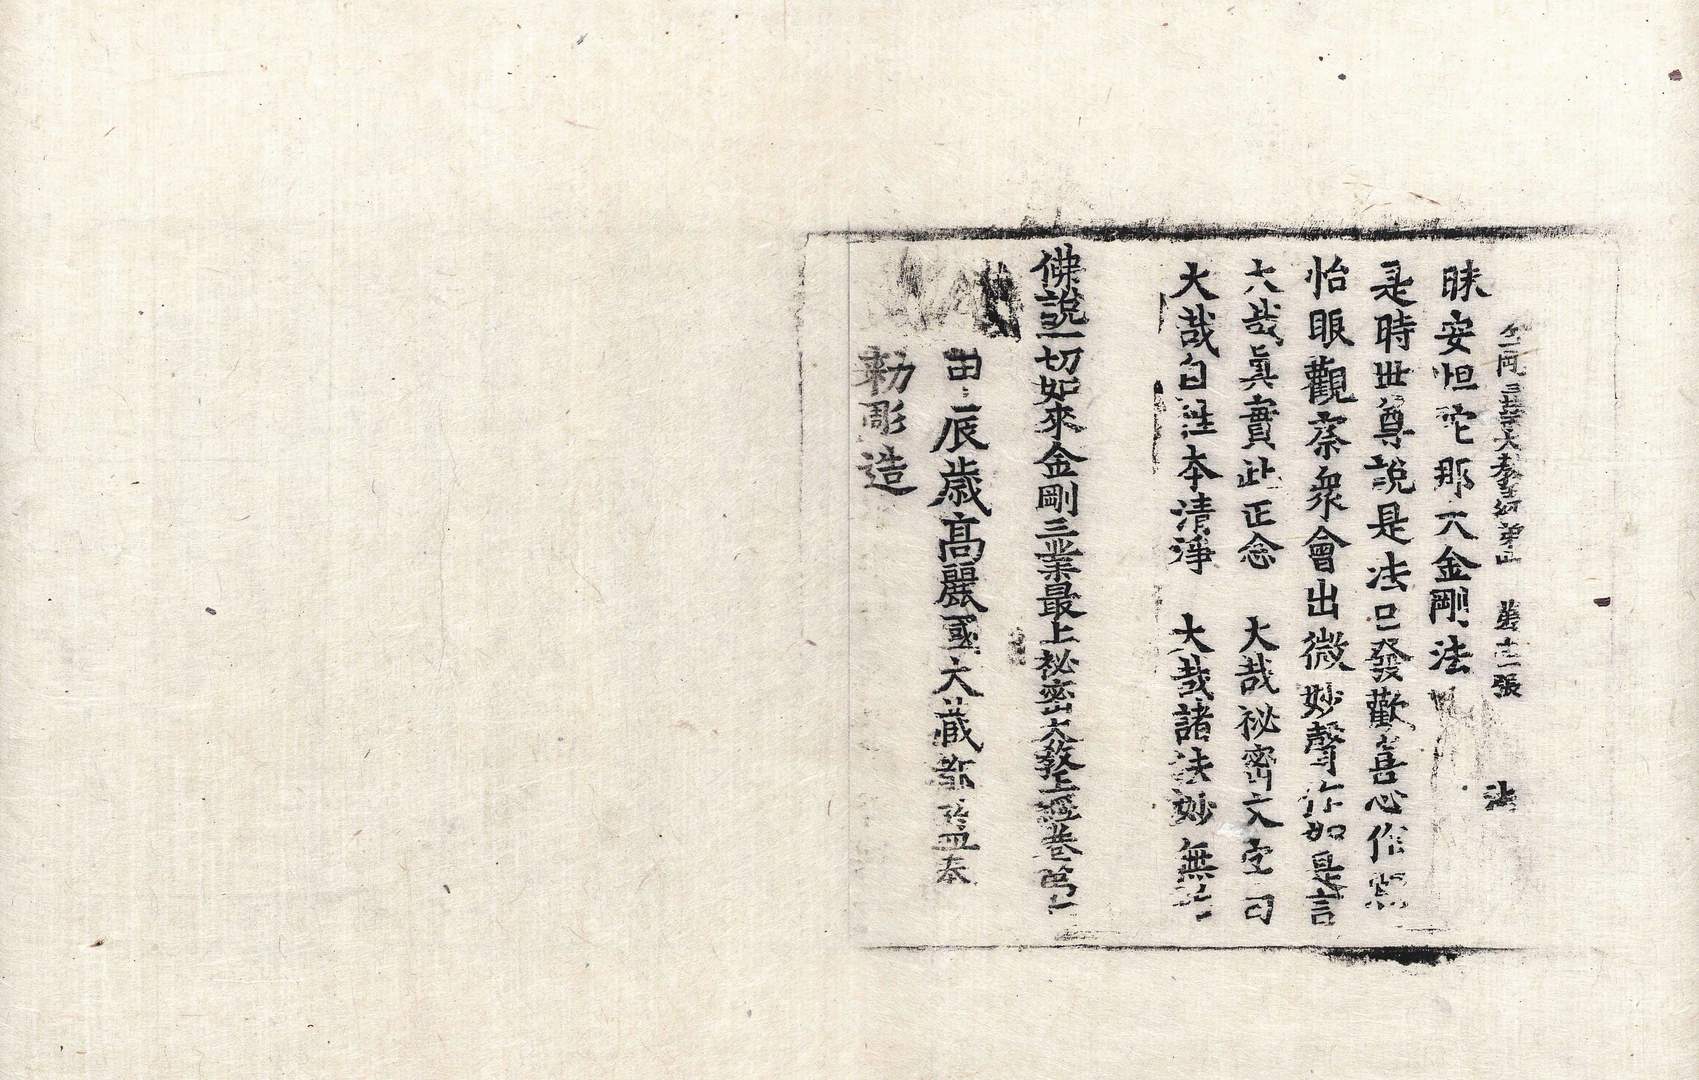 三業大教王經第 第十一張 法
昧安怛陀那大金剛法
是時世尊說是法已發歡喜心作熙
怡眼觀察衆會出微妙聲作如是言
大哉眞實此正念 大哉祕密文字句
大哉自性本清淨 大哉諸法妙無
佛說一切如來金剛三業最上祕密大教王經卷第
甲辰歲高麗國大藏都監奉
勅彫造